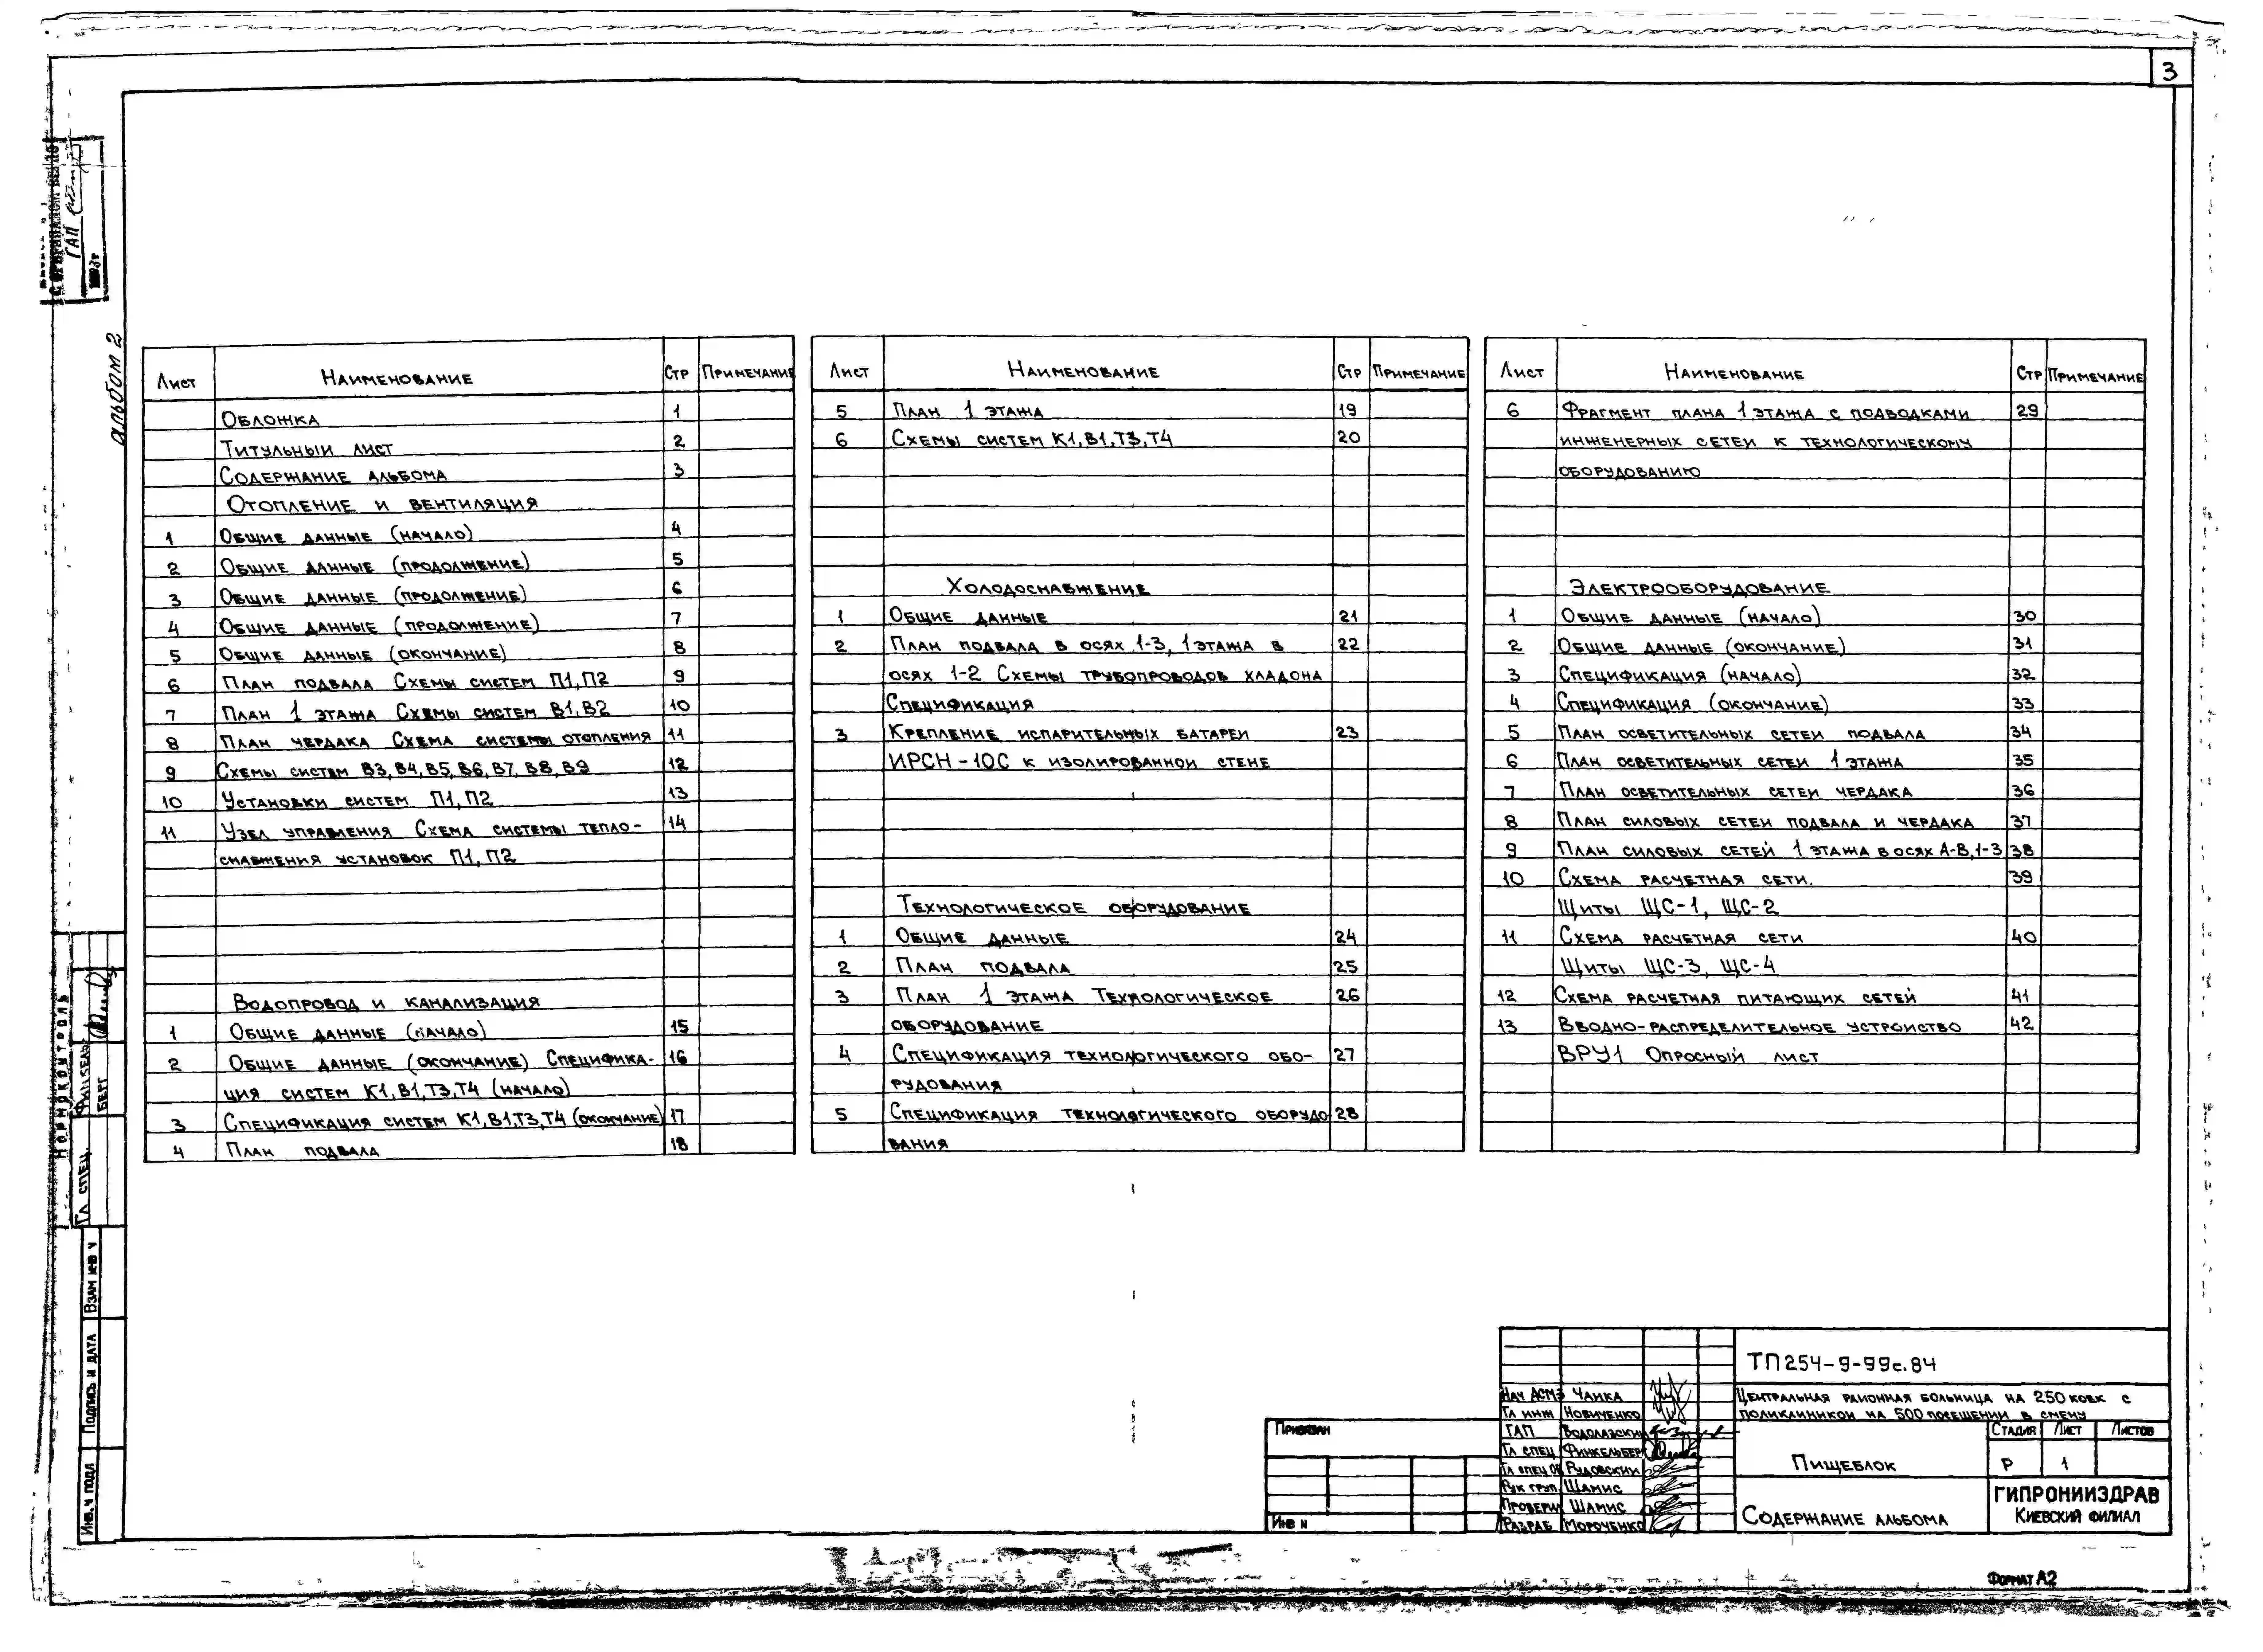 3
альбом 2
Лист Наименование Стр Примечание
Обложка 1
Титульный лист 2
Содержание альбома 3
Отопление и вентиляция
1 Общие данные (начало) 4
2 Общие данные (продолжение) 5
3 Общие данные (продолжение) 6
4 Общие данные (продолжение) 7
5 Общие данные (окончание) 8
6 План подвала Схемы систем П1,П2 9
7 План 1 этажа Схемы систем В1,В2 10
8 План чердака Схема системы отопления 11
9 Схемы систем В3,В4,В5,В6,В7,В8,В9 12
10 Установки систем П1,П2 13
11 Узел управления Схема системы тепло- 14
снабжения установок П1,П2
Водопровод и канализация
1 Общие данные (начало) 15
2 Общие данные (окончание) Специфика- 16
ция систем К1,В1,Т3,Т4 (начало)
3 Спецификация систем К1,В1,Т3,Т4 (окончание) 17
4 План подвала 18
Лист Наименование Стр Примечание
5 План 1 этажа 19
6 Схемы систем К1,В1,Т3,Т4 20
Холодоснабжение
1 Общие данные 21
2 План подвала в осях 1-3, 1 этажа в 22
осях 1-2 Схемы трубопроводов хладона
Спецификация
3 Крепление испарительных батареи 23
ИРСН-10С к изолированной стене
Технологическое оборудование
1 Общие данные 24
2 План подвала 25
3 План 1 этажа Технологическое 26
оборудование
4 Спецификация технологического обо- 27
рудования
5 Спецификация технологического оборудо 28
вания
Лист Наименование Стр Примечание
6 Фрагмент плана 1 этажа с подводками 29
инженерных сетей к технологическому
оборудованию
Электрооборудование
1 Общие данные (начало) 30
2 Общие данные (окончание) 31
3 Спецификация (начало) 32
4 Спецификация (окончание) 33
5 План осветительных сетей подвала 34
6 План осветительных сетей 1 этажа 35
7 План осветительных сетей чердака 36
8 План силовых сетей подвала и чердака 37
9 План силовых сетей 1 этажа в осях А-В,1-3 38
10 Схема расчетная сети. 39
Щиты ЩС-1, ЩС-2
11 Схема расчетная сети 40
Щиты ЩС-3, ЩС-4
12 Схема расчетная питающих сетей 41
13 Вводно-распределительное устройство 42
ВРУ1 Опросный лист
ГАП
Нормоконтроль
Гл спец.
Берг
Взам инв ч
Подпись и дата
Инв.ч подл
Привязан
Инв н
Нач АСМ3 Чайка
Гл инж Новиченко
ГАП Водолазский
Гл спец Финкельберг
Гл спец ОВ Рудовский
Рук груп. Шамис
Проверил Шамис
Разраб Мороченко
ТП 254-9-99с.84
Центральная районная больница на 250 коек с
поликлиникой на 500 посещений в смену
Пищеблок
Стадия Лист Листов
Р 1
Содержание альбома
ГИПРОНИИЗДРАВ
Киевский филиал
Формат А2